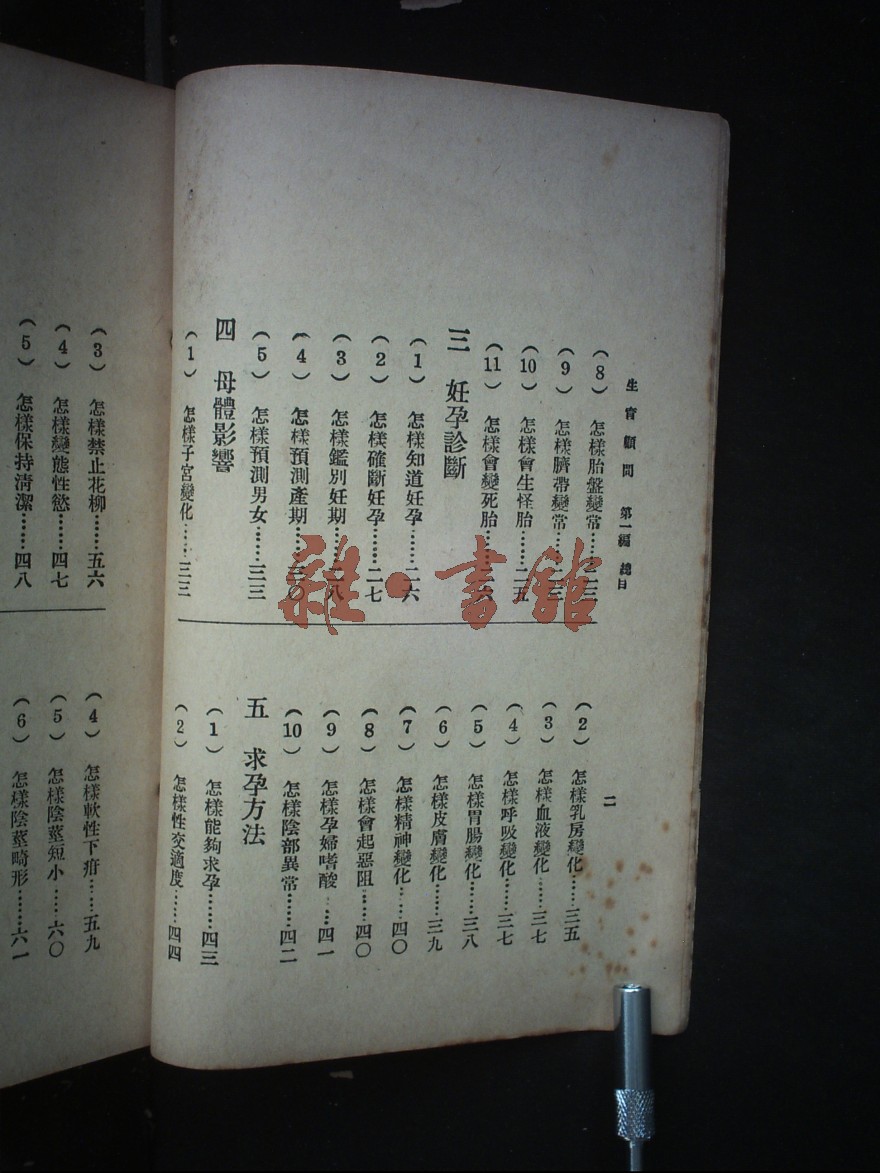 生育顧問　第一編　總目
二
（8）　怎樣胎盤變常……二三
（9）　怎樣臍帶變常……二三
（10）　怎樣會生怪胎……二五
（11）　怎樣會變死胎……二六
三　妊孕診斷
（1）　怎樣知道妊孕……二六
（2）　怎樣確斷妊孕……二七
（3）　怎樣鑑別妊期……二八
（4）　怎樣預測產期……三〇
（5）　怎樣預測男女……三三
四　母體影響
（1）　怎樣子宮變化……三三
（2）　怎樣乳房變化……三五
（3）　怎樣血液變化……三七
（4）　怎樣呼吸變化……三七
（5）　怎樣胃腸變化……三八
（6）　怎樣皮膚變化……三九
（7）　怎樣精神變化……四〇
（8）　怎樣會起惡阻……四〇
（9）　怎樣孕婦嗜酸……四一
（10）　怎樣陰部異常……四二
五　求孕方法
（1）　怎樣能夠求孕……四三
（2）　怎樣性交適度……四四
（3）　怎樣禁止花柳……五六
（4）　怎樣變態性慾……四七
（5）　怎樣保持清潔……四八
（4）　怎樣軟性下疳……五九
（5）　怎樣陰莖短小……六〇
（6）　怎樣陰莖畸形……六一
雜·書館